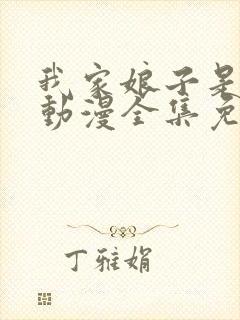 我家娘子是
動漫全集免
丁雅娟